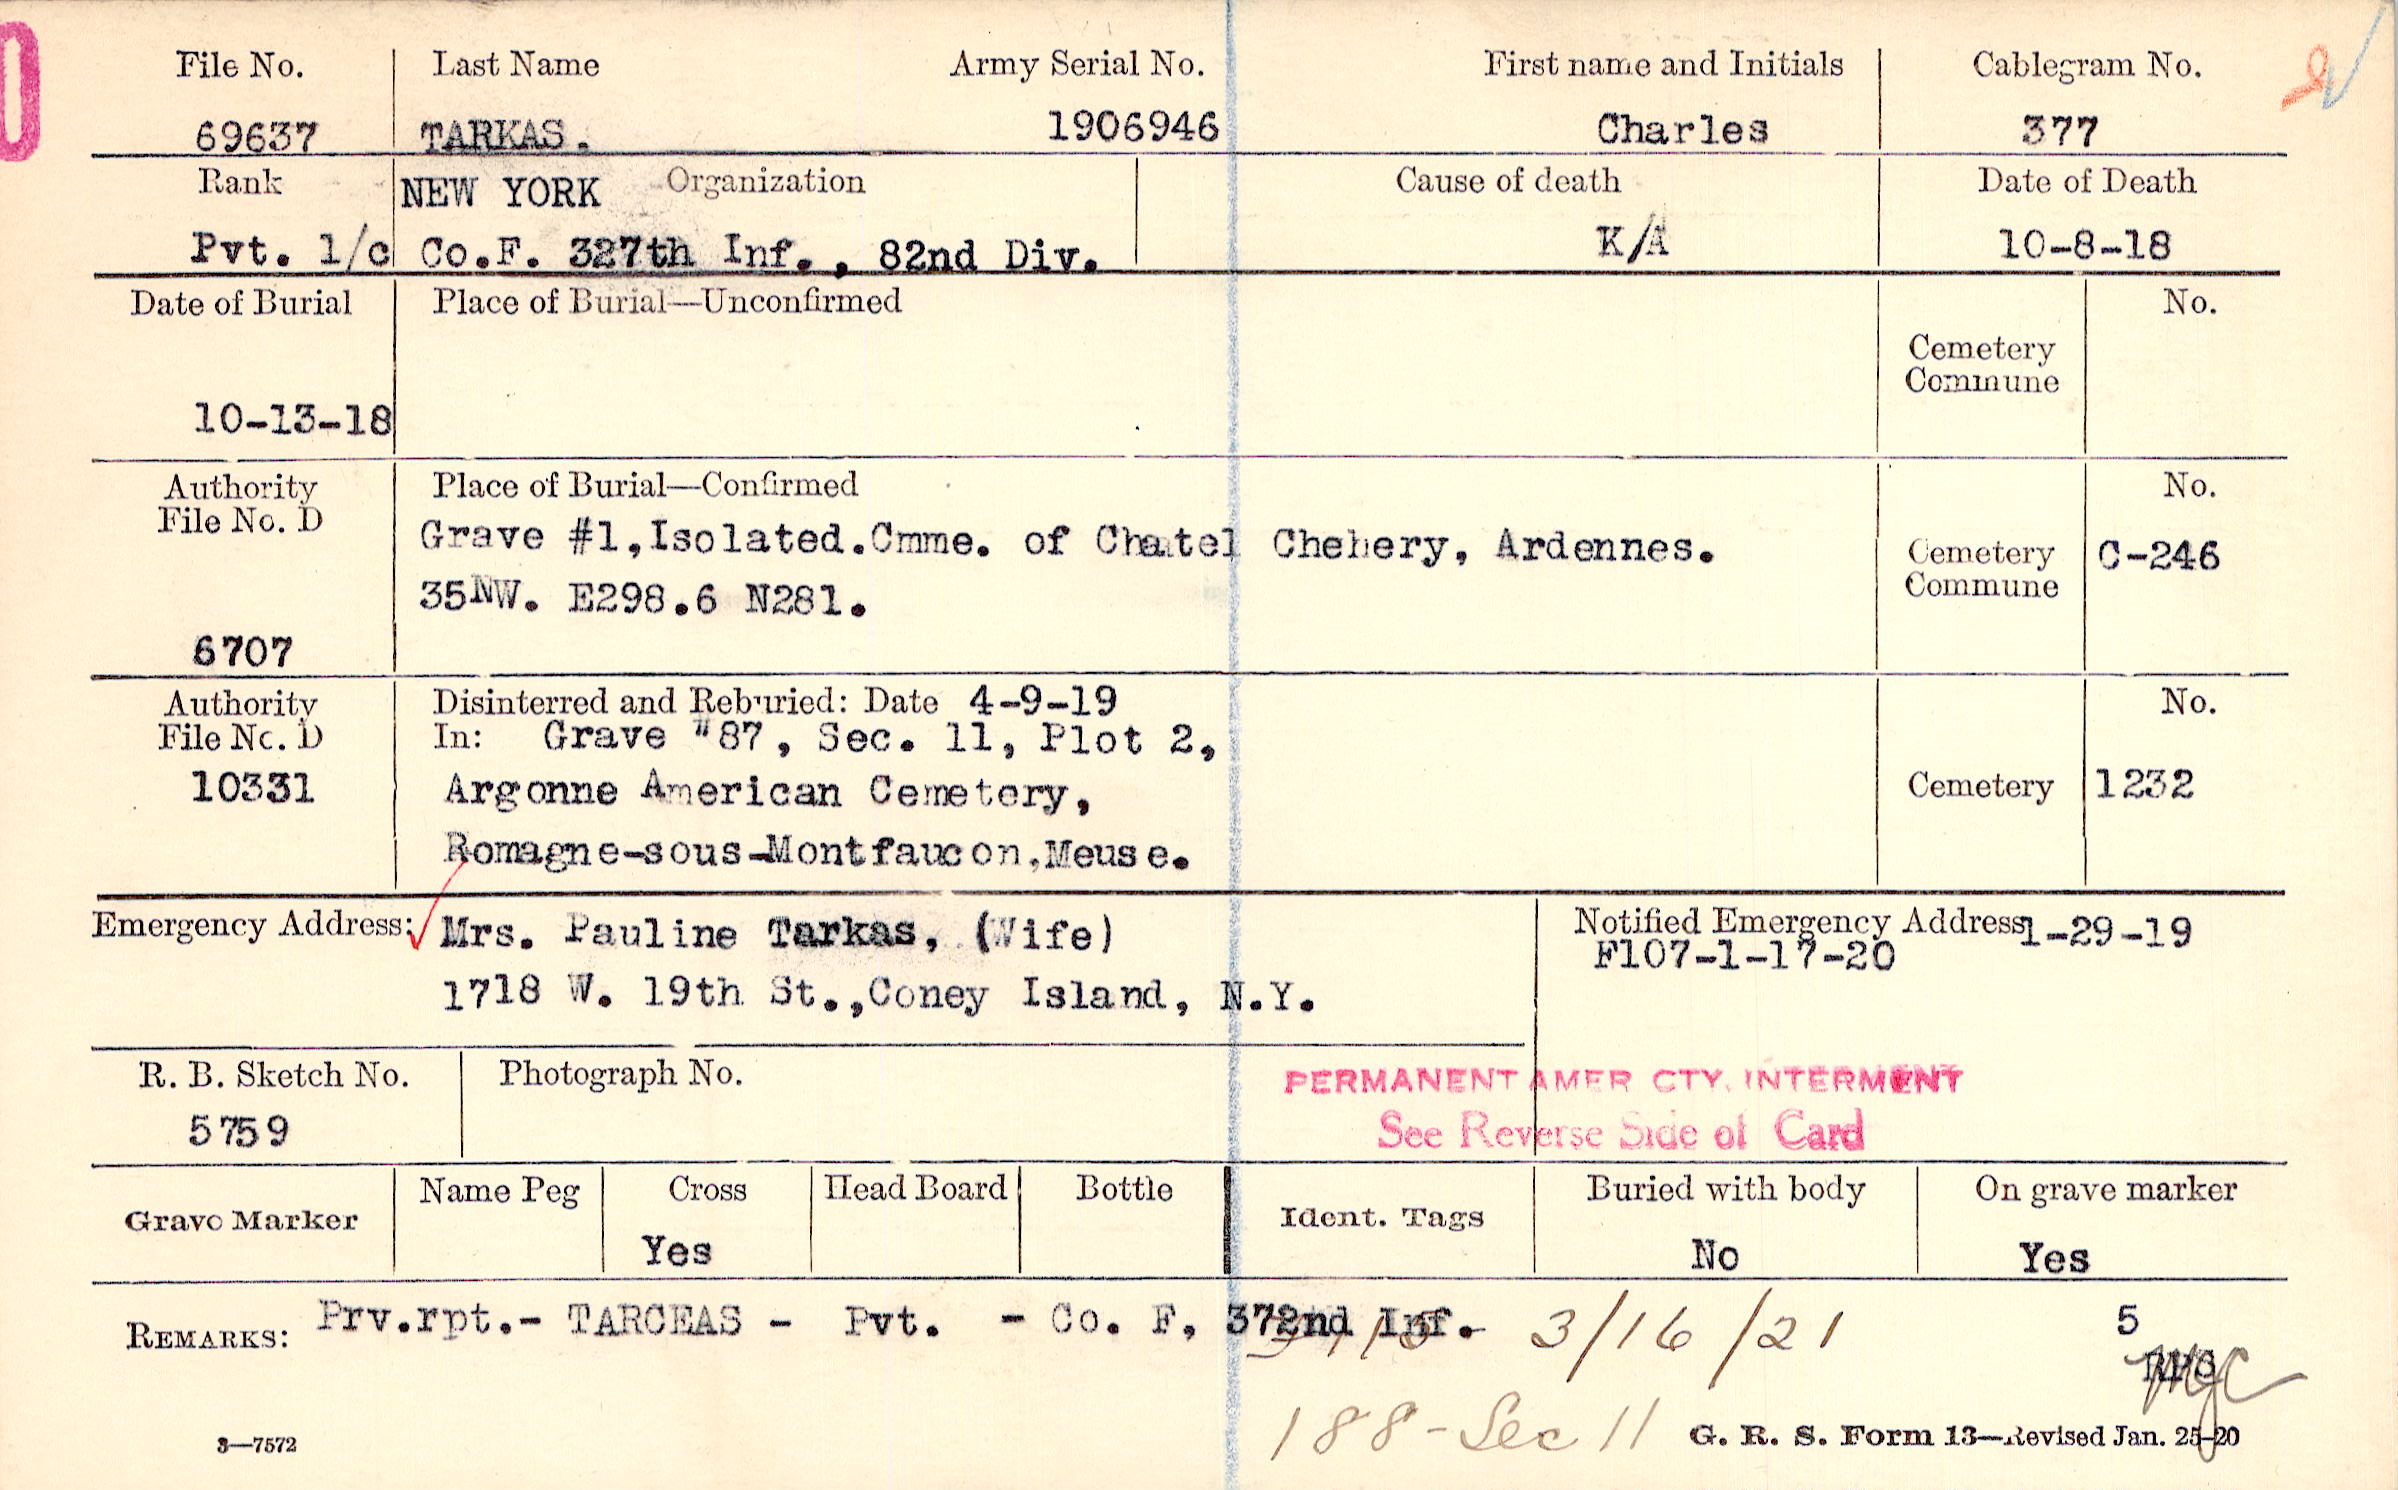 File No. Last Name Army Serial No. First name and Initials Cablegram No.
69637 TARKAS. 1906946 Charles 377
Rank NEW YORK Organization Cause of death Date of Death
Pvt. 1/c Co.F. 327th Inf., 82nd Div. K/A 10-8-18
Date of Burial Place of Burial—Unconfirmed No.
Cemetery
Commune
10-13-18
Authority Place of Burial—Confirmed No.
File No. D
Grave #1,Isolated.Cmme. of Chatel Chehery, Ardennes. Cemetery C-246
Commune
35NW. E298.6 N281.
6707
Authority Disinterred and Reburied: Date 4-9-19 No.
File No. D In: Grave "87, Sec. 11, Plot 2,
10331 Argonne American Cemetery, Cemetery 1232
Romagne-sous-Montfaucon,Meuse.
Emergency Address: Mrs. Pauline Tarkas, (Wife) Notified Emergency Address 1-29-19
F107-1-17-20
1718 W. 19th St.,Coney Island, N.Y.
R. B. Sketch No. Photograph No. PERMANENT AMER CTY. INTERMENT
5759 See Reverse Side of Card
Grave Marker Name Peg Cross Head Board Bottle Ident. Tags Buried with body On grave marker
Yes No Yes
REMARKS: Prv.rpt.- TARCEAS - Pvt. - Co. F, 372nd Inf. - 3/16/21 5
188-Sec 11
3—7572 G. R. S. Form 13—Revised Jan. 25-20